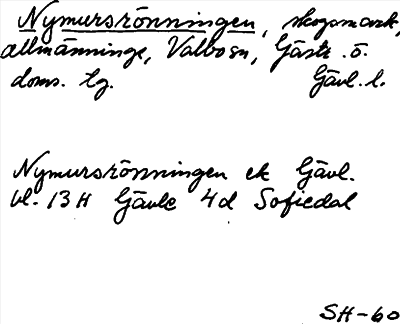 Nymursrönningen, skogsmark,
allmänninge, Valbosn, Gästr. ö.
doms. tg. Gävl. l.
Nymursrönningen ek Gävl.
bl. 13H Gävle 4d Sofiedal
SH-60